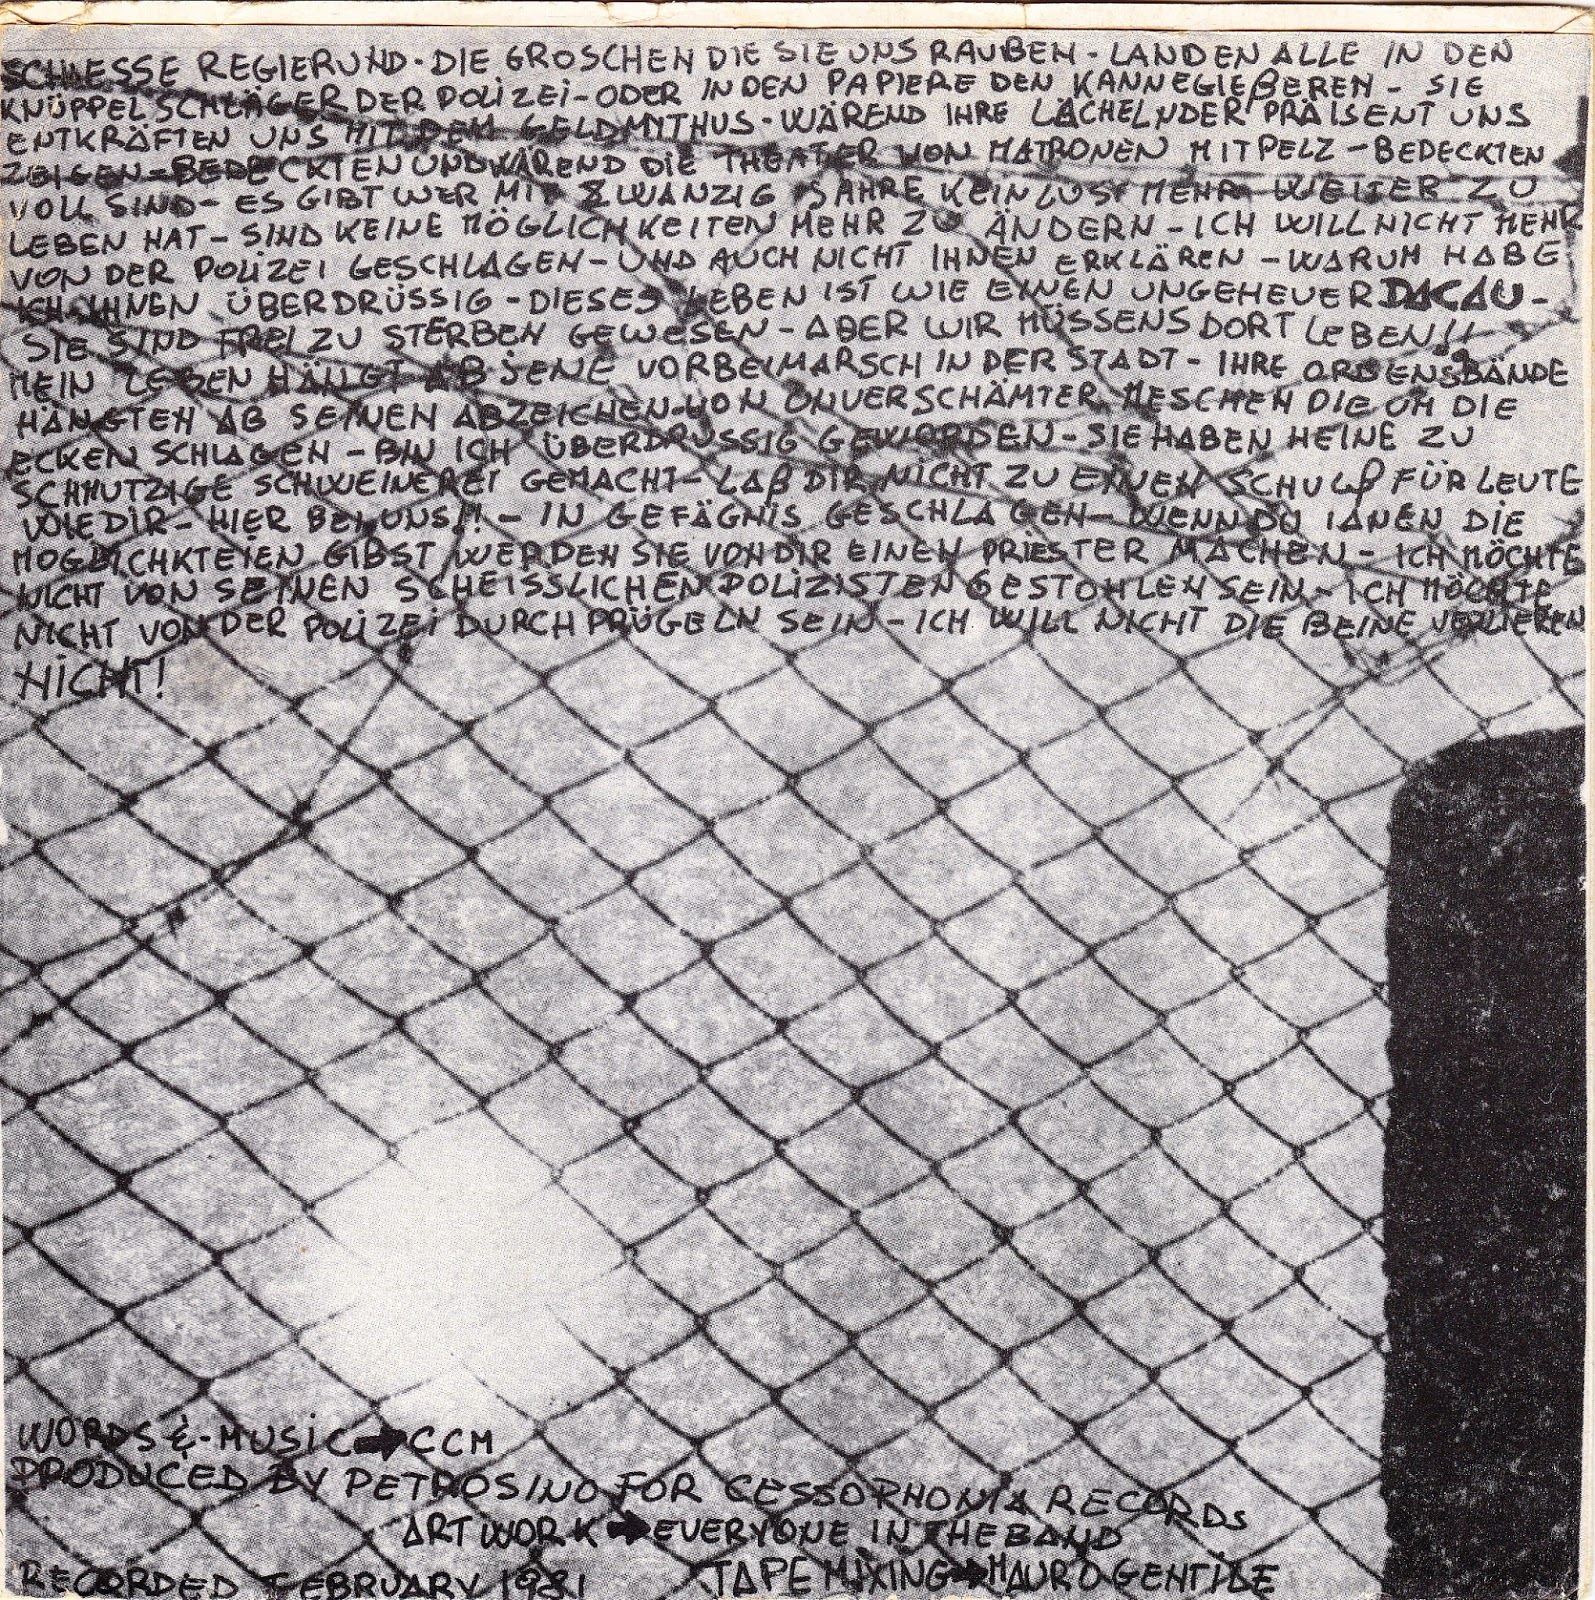 SCHIESSE REGIERUND - DIE GROSCHEN DIE SIE UNS RAUBEN - LANDEN ALLE IN DEN
KNÜPPELSCHLÄGER DER POLIZEI - ODER IN DEN PAPIERE DEN KANNEGIEßEREN - SIE
ENTKRÄFTEN UNS MIT DEM GELDMYTHUS - WÄREND IHRE LÄCHELNDER PRÄISENT UNS
ZEIGEN - BEDECKTEN UND WÄREND DIE THEATER VON MATRONEN MIT PELZ - BEDECKTEN
VOLL SIND - ES GIBT WER MIT ZWANZIG JAHRE KEIN LUST MEHR WEITER ZU
LEBEN HAT - SIND KEINE MÖGLICHKEITEN MEHR ZU ÄNDERN - ICH WILL NICHT MEHR
VON DER POLIZEI GESCHLAGEN - UND AUCH NICHT IHNEN ERKLÄREN - WARUM HABE
ICH IHNEN ÜBERDRÜSSIG - DIESES LEBEN IST WIE EINEN UNGEHEUER DACAU -
SIE SIND FREI ZU STERBEN GEWESEN - ABER WIR MÜSSENS DORT LEBEN!!
MEIN LEBEN HÄNGT AB JENE VORBEIMARSCH IN DER STADT - IHRE ORDENSBÄNDE
HÄNGTEN AB SEINEN ABZEICHEN - VON UNVERSCHÄMTER MESCHEN DIE UM DIE
ECKEN SCHLAGEN - BIN ICH ÜBERDRUSSIG GEWORDEN - SIE HABEN MEINE ZU
SCHMUTZIGE SCHWEINEREI GEMACHT - LAß DIR NICHT ZU EINEN SCHULß FÜR LEUTE
WIE DIR - HIER BEI UNS!! - IN GEFÄGNIS GESCHLAGEN - WENN DU IANEN DIE
MOGLICHKTEIEN GIBST WERDEN SIE VON DIR EINEN PRIESTER MACHEN - ICH MÖCHTE
NICHT VON SEINEN SCHEISSLICHEN POLIZISTEN GESTOHLEN SEIN - ICH MÖCHTE
NICHT VON DER POLIZEI DURCH PRÜGELN SEIN - ICH WILL NICHT DIE BEINE VERLIEREN
NICHT!
WORDS & - MUSIC ➡ CCM
PRODUCED BY PETROSINO FOR CESSOPHONIA RECORDS
ARTWORK ➡ EVERYONE IN THE BAND
RECORDED FEBRUARY 1981 TAPE MIXING ➡ MAURO GENTILE